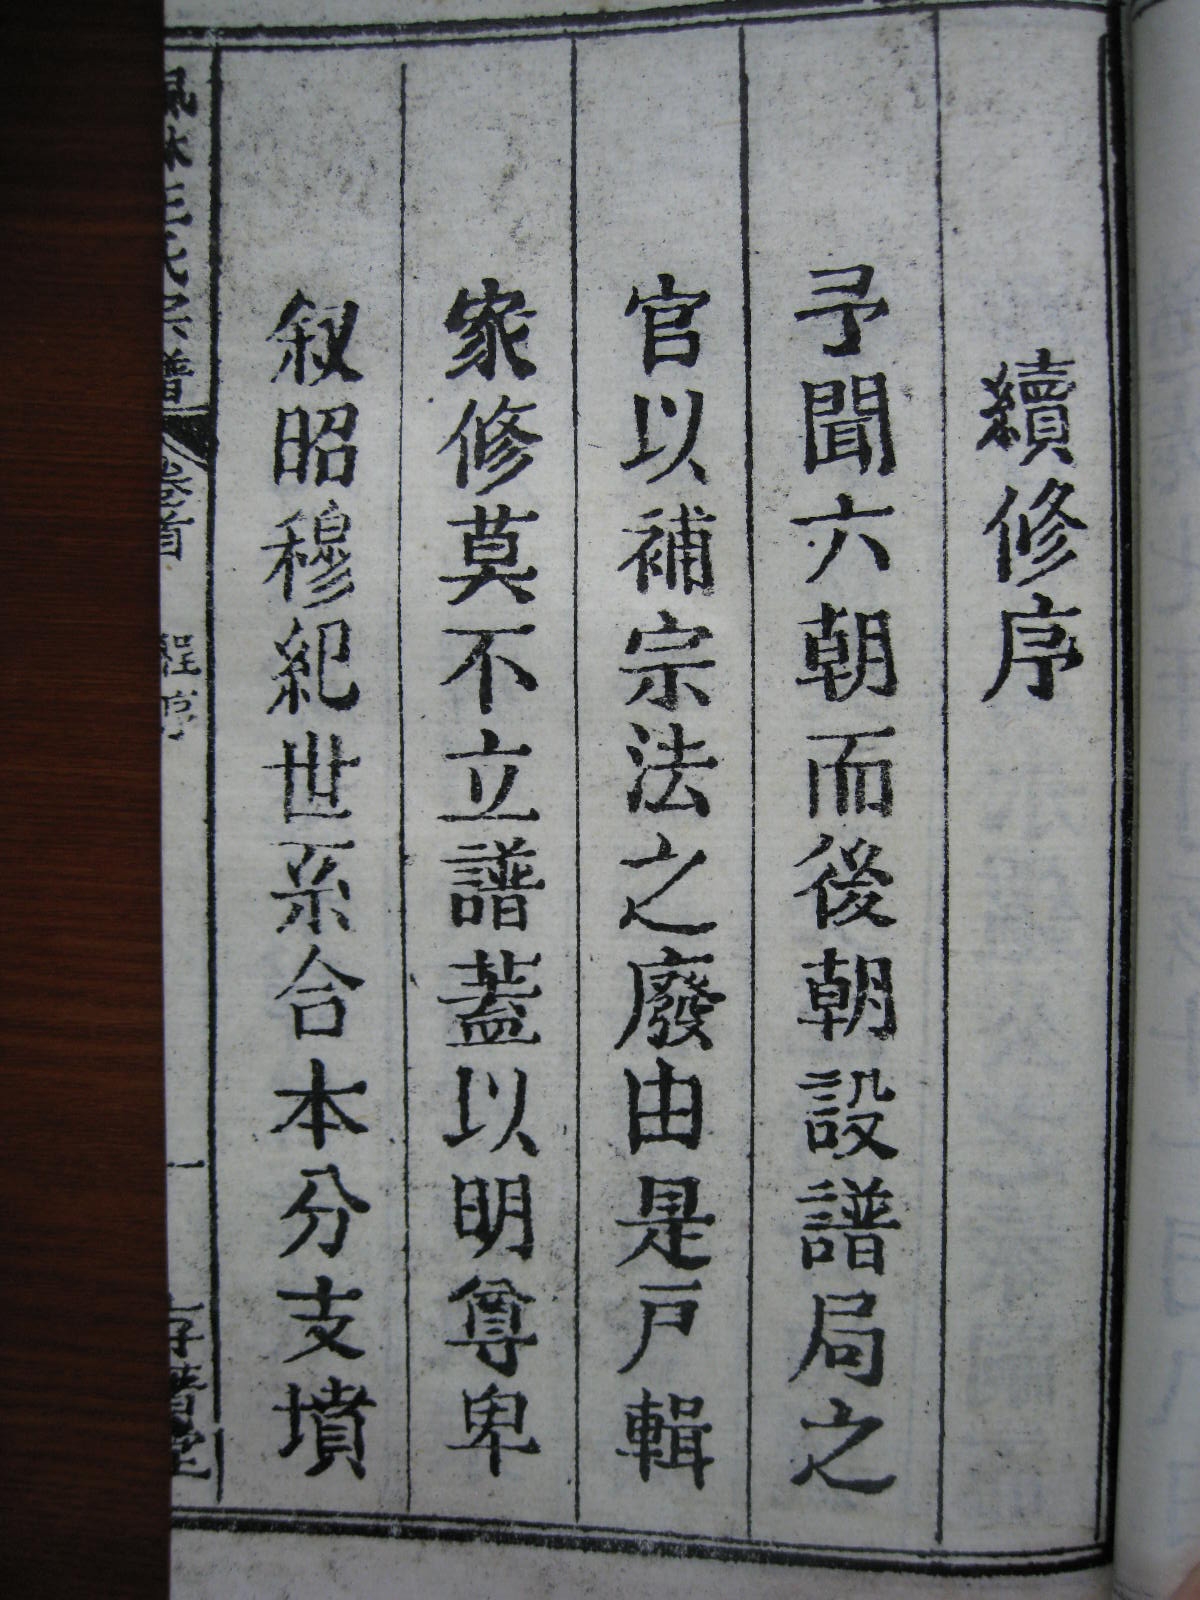 續修序
予聞六朝而後朝設譜局之
官以補宗法之廢由是戸輯
家修莫不立譜蓋以明尊卑
叙昭穆紀世系合本分支墳
王氏宗譜
卷首
程序
一